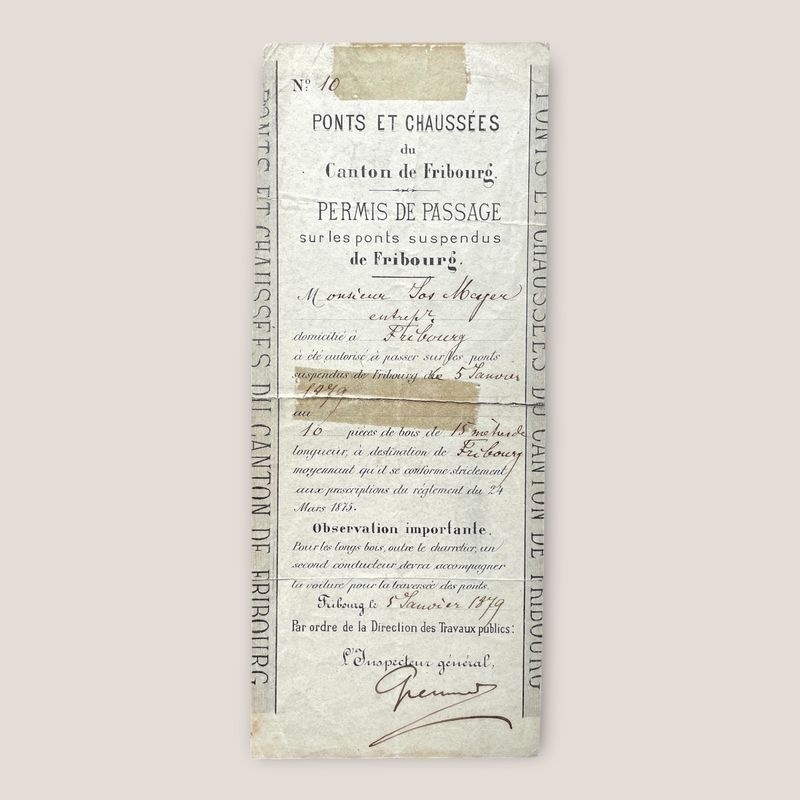 PONTS ET CHAUSSÉES DU CANTON DE FRIBOURG
Nº 10
PONTS ET CHAUSSÉES
du
Canton de Fribourg.
PERMIS DE PASSAGE
sur les ponts suspendus
de Fribourg.
Monsieur Jos Meyer
entrepr
domicilié à Fribourg
à été autorisé à passer sur les ponts
suspendus de Fribourg le 5 Janvier
1879
au
10 pièces de bois de 15 mètres de
longueur, à destination de Fribourg
moyennant qu'il se conforme strictement
aux prescriptions du règlement du 24
Mars 1875.
Observation importante.
Pour les longs bois, outre le charretier, un
second conducteur devra accompagner
la voiture pour la traversée des ponts.
Fribourg le 5 Janvier 1879
Par ordre de la Direction des Travaux publics:
L'Inspecteur général,
PONTS ET CHAUSSÉES DU CANTON DE FRIBOURG